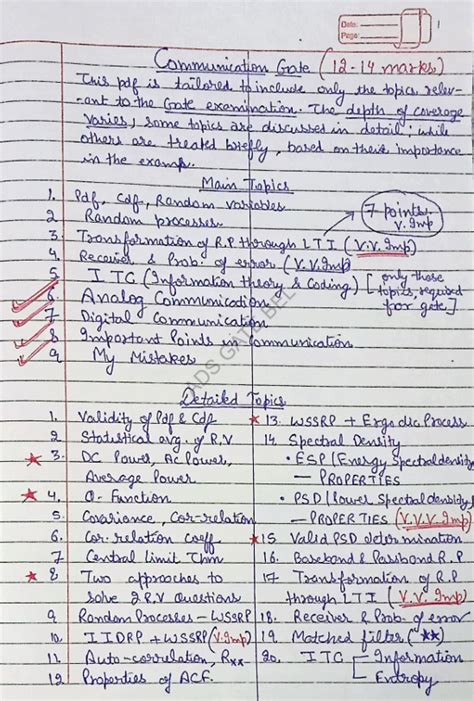 Date:
Page:
1
Communication Gate (12-14 marks)
This pdf is tailored to include only the topics relev-
-ant to the Gate examination. The depth of coverage
varies, some topics are discussed in detail; while
others are treated briefly, based on their importance
in the exams.
Main Topics
1. Pdf, Cdf, Random variables
2 Random processes
3. Transformation of R.P through LTI (V.V. Imp)
7 points.
V. Imp
4. Receiver & Prob. of error (V.V. Imp)
5 ITC (Information theory & Coding) [only those
topics, required
for gate]
6. Analog Communication
7 Digital Communication
8 Important Points in communication
9 My Mistakes
ADS GATE BEL
Detailed Topics
1. Validity of Pdf & Cdf
2 Statistical avg. of R.V
3. DC Power, AC Power,
Average Power
4. Q-Function
5. Covariance, Cor-relation
6. Cor. relation coeff
7 Central limit Thm
8 Two approaches to
solve 2 R.V Questions
9. Random Processes - WSSRP
10. IIDRP + WSSRP (V.Imp)
11. Auto-correlation, Rxx
12 Properties of ACF.
13. WSSRP + Ergodic Process
14 Spectral Density
• ESD (Energy Spectral density)
- PROPERTIES
• PSD (Power Spectral density)
- PROPERTIES (V.V.V. Imp)
15 Valid PSD determination
16 Baseband & Passband R.P
17 Transformation of R.P
through LTI (V.V. Imp)
18. Receiver & Prob. of error
19. Matched filter (**)
20. ITC Information
Entropy